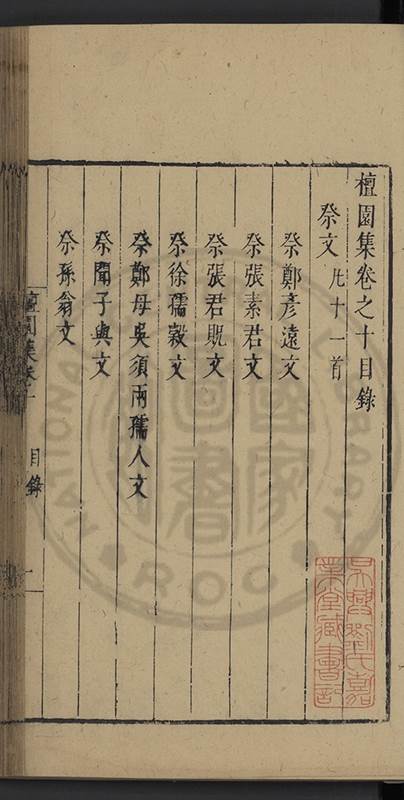 檀園集卷之十目錄
祭文 凡十一首
祭鄭彥遠文
祭張素君文
祭張君貺文
祭徐孺穀文
祭鄭母吳須兩孺人文
祭聞子與文
祭孫翁文
檀園集 卷十 目錄 一
吳興劉氏嘉
業堂藏書印